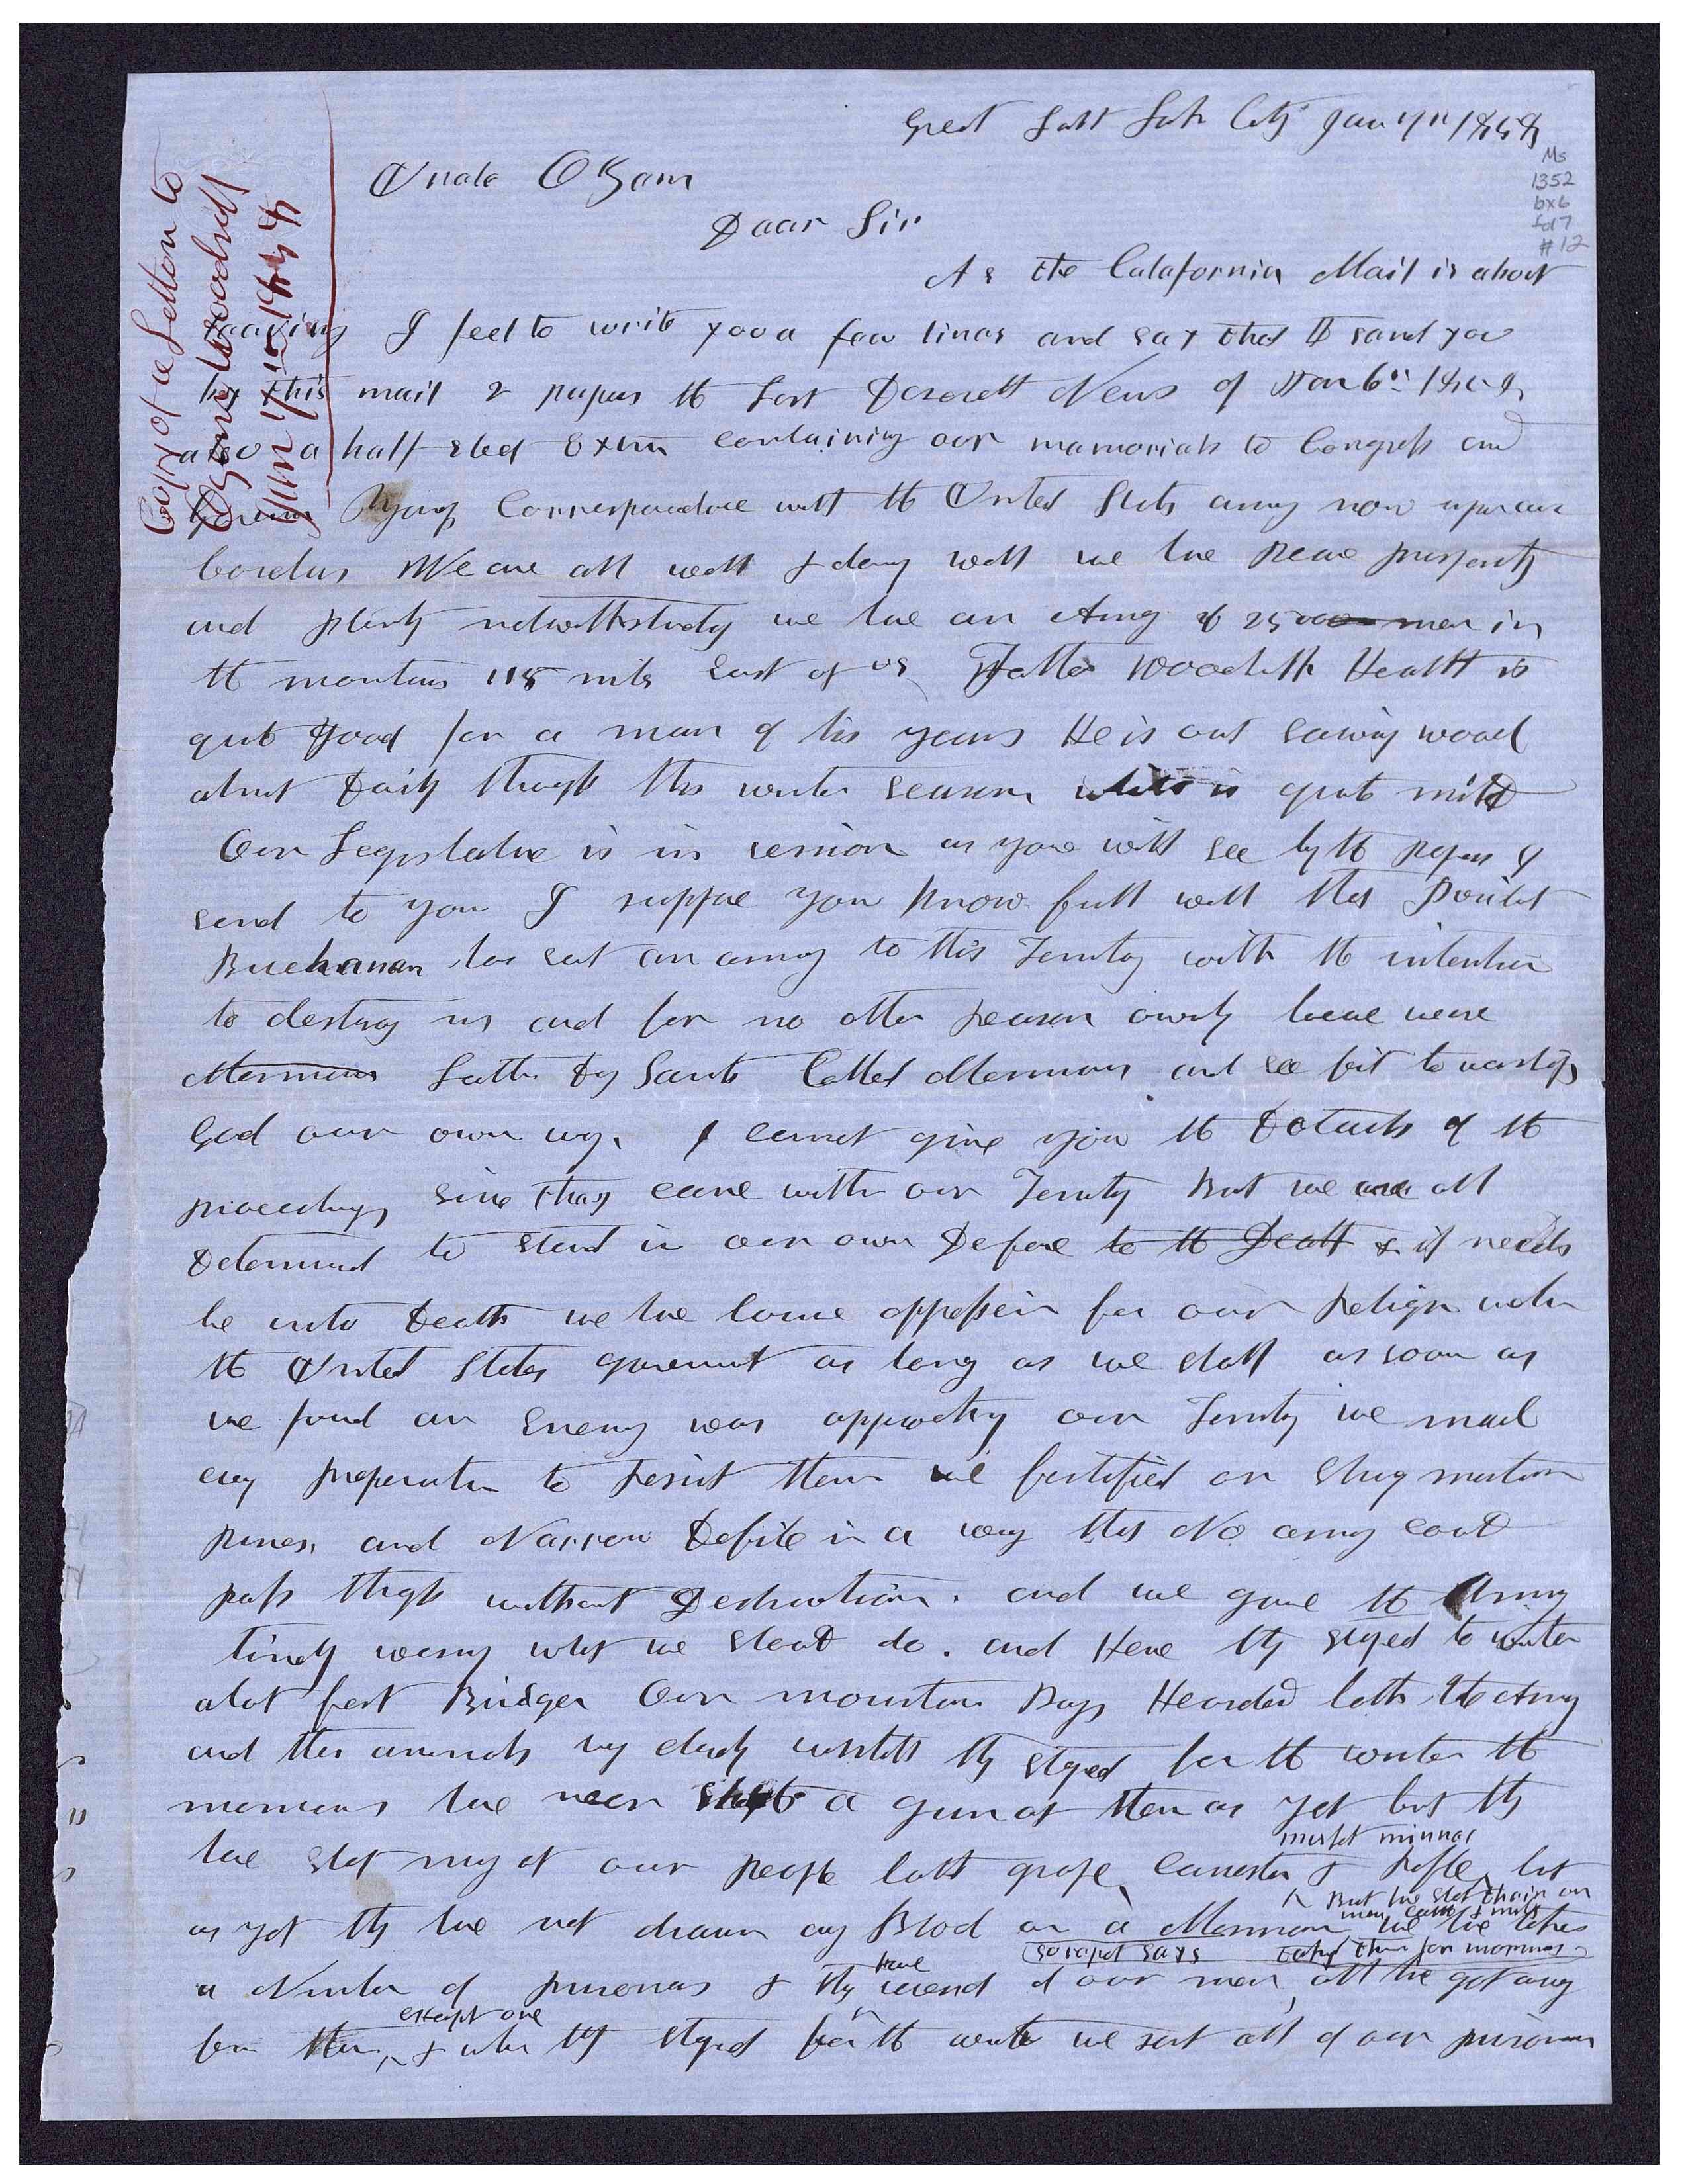 Copy of a Letter to
Ozem Woodruff
Jan 7th 1858
Great Salt Lake City Jan 7th 1858
Ms
1352
bx6
fd7
#12
Uncle Ozem
Dear Sir
As the Calafornia Mail is about
leaving I feel to write you a few lines and say that I send you
by this mail 2 papers the last Deserett News of Jan 6th 1858
also a half sheet Extra containing our memorials to Congress and
Govornor Youngs Correspondance with the United States army now upon our
borders We are all well & doing well we have peace prosperity
and plenty notwithstanding we have an Army of 2500 men in
the mountains 115 miles East of us Father Woodruff Health is
quite good for a man of his years He is out sawing wood
about Daily though this winter season which is quite mild
Our Legislature is in session as you will see by the papers I
send to you I suppose you know full well that Presidet
Buchanan has sent an army to this Territory with the intention
to destroy us and for no other reason ownly because we are
Mormons Latter Day Saints Called Mormons and see fit to worship
God our own way. I cannot give you the Details of the
proceedings since they came within our Territory But we are all
Determined to stand in our own Defence to the Death & if needs
be unto Death we have borne oppression for our religion under
the United States government as long as we shall as soon as
we found an Enemy was approaching our Territory we made
evry preperation to resist them we fortified our strong mountain
passes and Narrow Defile in a way that No army could
pass through without Destruction. and we gave the Army
timely warning what we should do. and Hence they stoped to winter
about fort Bridger Our mountain Boys Hearded both the Army
and their animals vary closely untill they stoped for the winter the
mormons have never shot a gun at them as yet but they
have shot many at our people both grape, Canester & rifle, but
musket minnae
But have shot thair own
many cattle & mules
as yet they have not drawn any Blood on a Mormon we have taken
so report says taking them for mormons
a Number of prisoners & they have several of our men, all have got away
except one
from them, & when they stoped for the winter we sent all of our prisoners